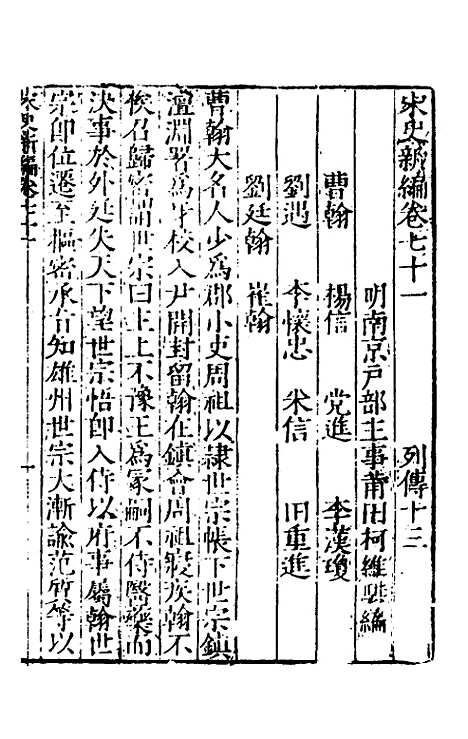 宋史新編卷七十一　列傳十三
明南京戶部主事莆田柯維騏編
曹翰　楊信　党進　李漢瓊
劉遇　李懷忠　米信　田重進
劉廷翰　崔翰
曹翰大名人少爲郡小吏周祖以隸世宗帳下世宗鎮
澶淵署爲牙校入尹開封留翰在鎮會周祖寢疾翰不
俟召歸密謂世宗曰主上不豫王爲冢嗣不侍醫藥而
決事於外廷失天下望世宗悟即入侍以府事屬翰世
宗即位遷至樞密承旨知雄州世宗大漸諭范質等以
宋史新編卷七十一